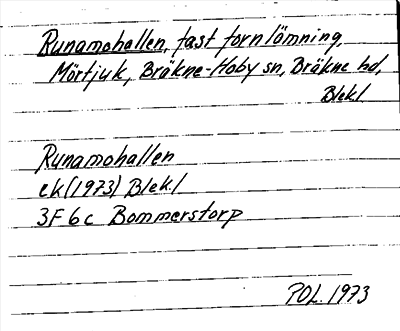 Runamohallen, fast fornlämning,
Mörtjuk, Bräkne-Hoby sn, Bräkne hd,
Blekl
Runamohallen
ek (1973) Blekl
3F 6c Bommerstorp
POL 1973